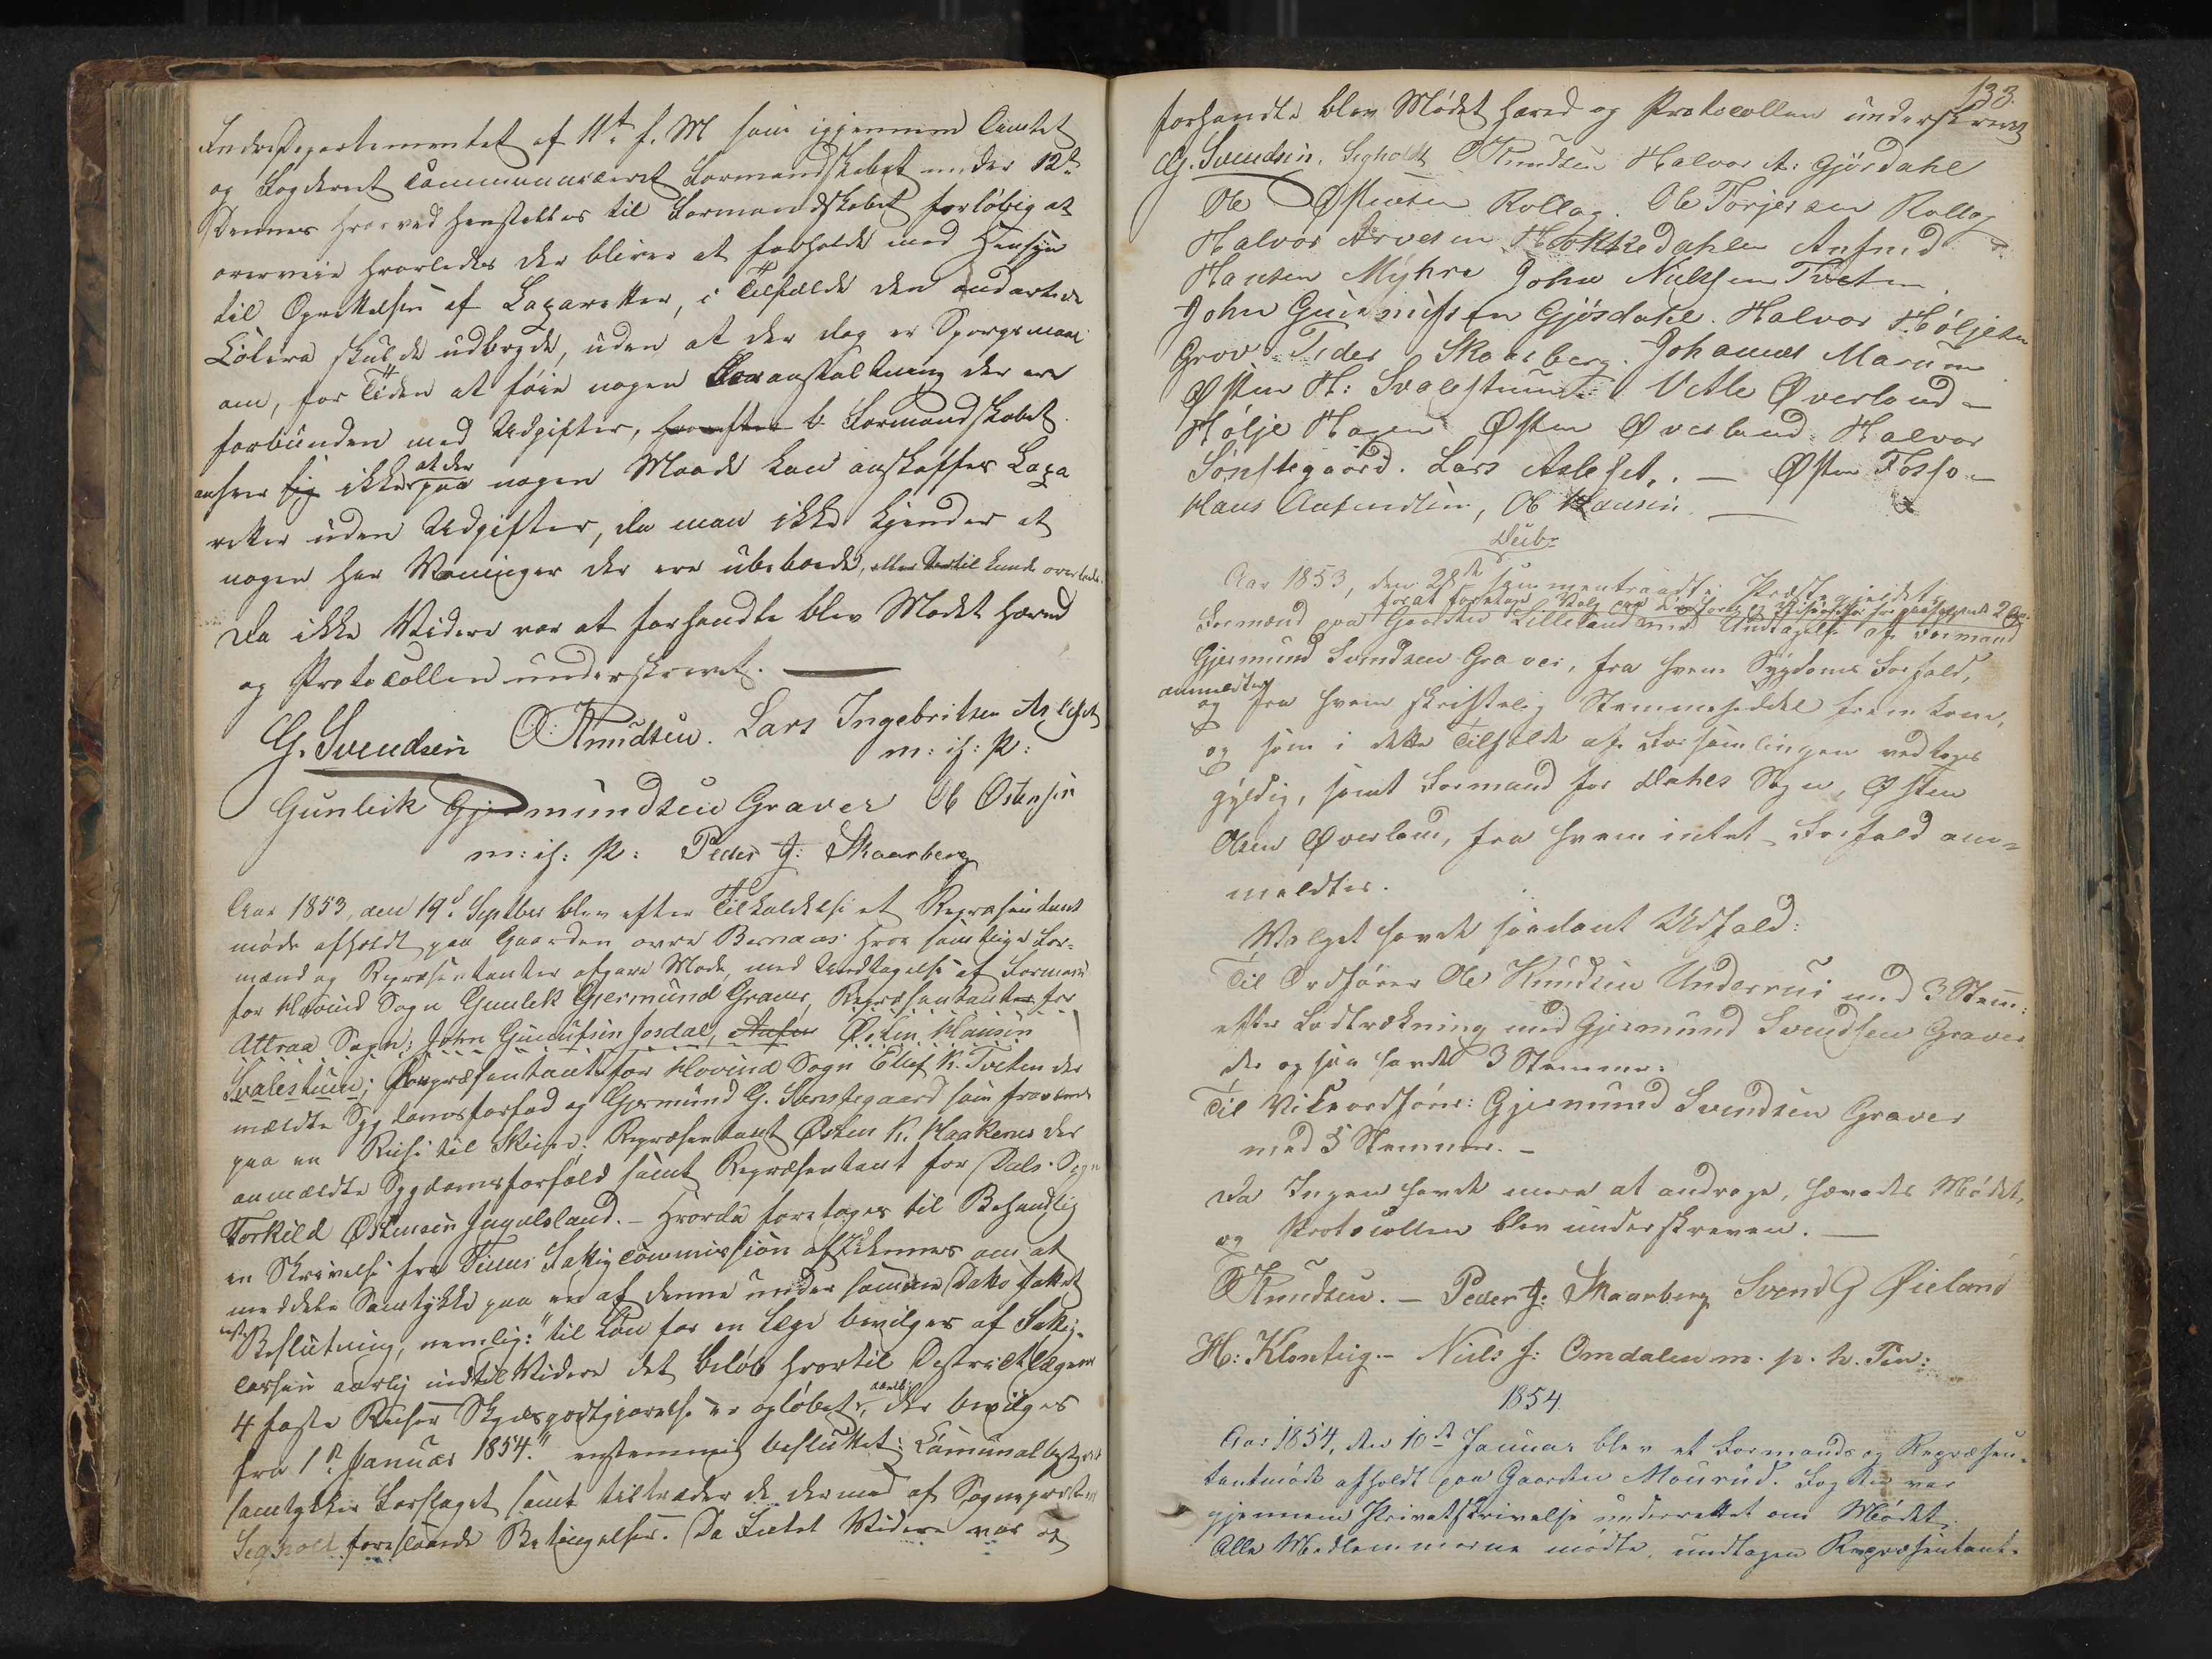 Indredepartementet af 11te f. M som igjennem Amtet
og Fogderiet communiceret Formandskabet under 12te
Dennes hvorved henstilles til Formandskabet forløbig at
overveie hvorledes der bliver at forholde med Hensyn
til Oprettelsen af Lazaretter, i Tilfælde den ondartede
Colera skulde udbryde, uden at der dog er Spørgsmaal
om, for Tiden at føie nogen Foranstaltning der er
forbunden med Udgifter, Formandskabet
anseer sig ikke at der paa nogen Maade kan anskaffes Laza
retter uden Udgifter, da man ikke kjender at
nogen har Vaaninger der ere ubeboede, eller dertil kunde overlades.
Da ikke Videre var at forhandle blev Mødet hævet
og Protocollen underskrevet. —
G. Svendsen O Knudsen. Lars Ingebritsen Aslefet
m: if: P:
Gunleik Gjermundsen Graver Ole Østensen
m: if: P: Peder J: Skaarberg
Aar 1853, den 19de Septber blev efter Tilkaldelse et Repræsentant
møde afholdt paa Gaarden øvre Bernaas hvor samtlige For-
mænd og Repræsentanter afgave Møde, med Undtagelse af Formand
for Hovind Sogn Gunlek Gjermund Graver, Repræsentanter for
Attraa Sogn: John Gunulfsen Josdal, Østen Hansen
Svalestuen; Repræsentant for Hovind Sogn Elef K. Tveten der
meldte Sygdomsforfald og Gjermund G. Sønstegaard som fraværende
paa en Reise til Skien. Repræsentant Østen K. Haakenes der
anmeldte Sygdomsforfald samt Repræsentant for Dals Sogn
Torkild Østensen Ingulsland. – Hvorda foretoges til Behandlig
en Skrivelse fra Tinns Fattigcommission af Dennes om at
meddele Samtykke paa en af denne under samme Dato fattet
Beslutning, nemlig: "til Løn for en Læge bevilges af Fattig-
cassen aarlig indtil Videre det Beløb hvortil Destrictlægens
4 faste Reiser Skydsgodtgjørelse er opløbet, der bevilges
fra 1te Januar 1854." enstemmig besluttet: Communalbestyrelsen
samtykker Forslaget samt tiltræder de dermed af Sognepresten
Segholt foreslaaede Betingelser. Da Intet Videre var at
133.
forhandle blev Mødet hævet og Protocollen underskrevet
G. Svendsen. Segholdt O Knudsen Halvor A: Gjørdahl
Ole Østensen Rollag. Ole Torjersen Rollag
Halvor Arvesen Haakkedahlen Anfind
Hansen Myhre John Nielsen Tveten.
John Gunnulfsen Gjøsdahl. Halvor Høljesen
Grov Peder Skaarberg. Johannes Marum
Østen H: Svalestuen Vetle Øverland –
Hølje Hagen Østen Øverland. Halvor
Sønstegaard. Lars Aslefet. – Østen Fosso –
Hans Anfindsen, Ole Hansen. —
Aar 1853, den 28de sammentraadte Præstegjeldets
forat foretage Valg paa Ordfører og Viceordfører for paafølgende 2 Aar.
Formænd paa Gaarden Lilleland med Undtagelse af Formand
Gjermund Svendsen Graver, fra hvem Sygdoms Forfald,
anmeldtes
og fra hvem skriftelig Stemmeseddel fremkom,
og som i dette Tilfælde af Forsamlingen vedtoges
gyldig, samt Formand for Dahls Sogn, Østen
Olsen Øverland, fra hvem intet Forfald an-
meldtes.
Valget havde saadant Udfald:
Til Ordfører Ole Knudsen Underrui med 3 Stem:
efter Lodtrækning med Gjermund Svendsen Graver
der ogsaa havde 3 Stemmer.
Til Viceordfører: Gjermund Svendsen Graver
med 5 Stemmer. –
Da Ingen havde mere at andrage, hævedes Mødet,
og Protocollen blev underskreven. —
O Knudsen. – Peder J: Skaarberg Svend G Øieland
H: Klonteig. – Niels J: Omdalen m. p. P. Pen:
1854.
Aar 1854, den 10de Januar blev et Formands og Repræsen-
tantmøde afholdt paa Gaarden Mourud. Fogden var
gjennem Privatskrivelse underrettet om Mødet.
Alle Medlemmerne mødte, undtagen Repræsentant-